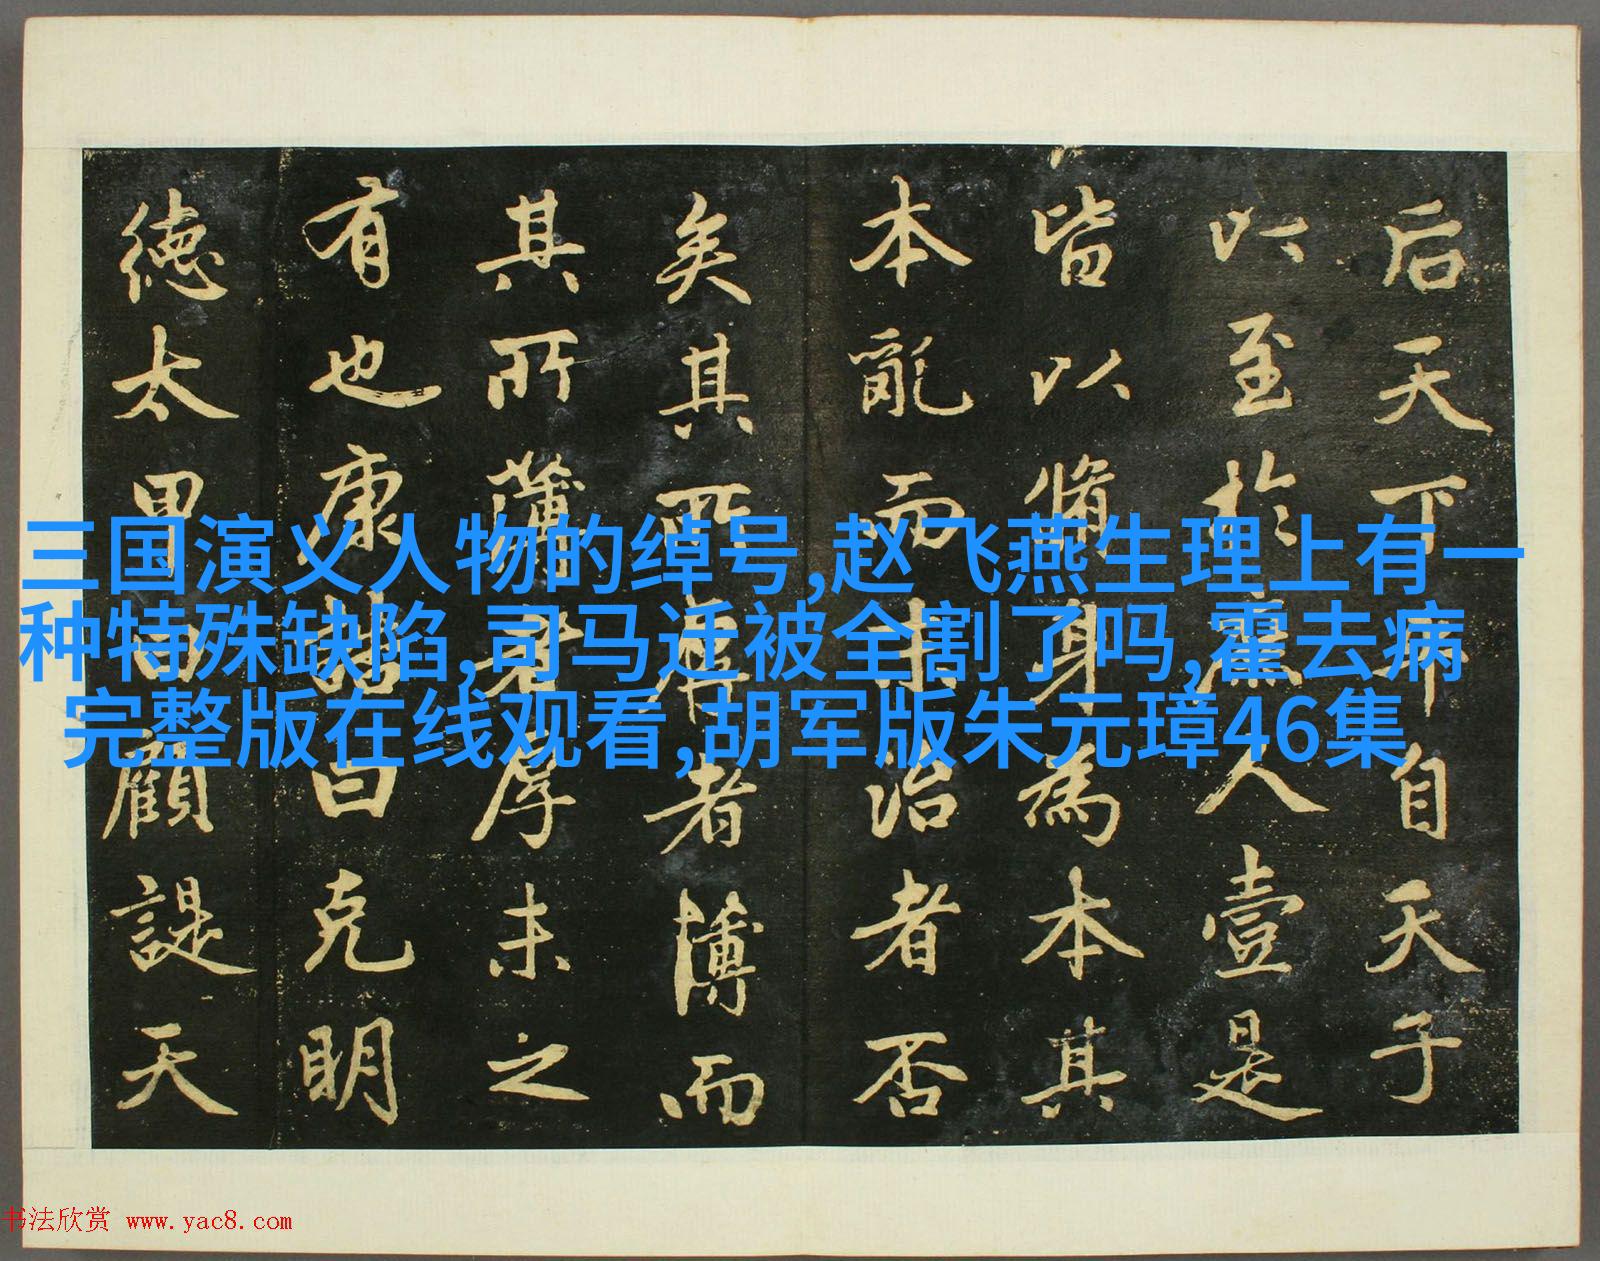 后天下平自天子
以至於庶人壹是
皆以脩身為本其
本亂而末治者否
矣其所厚者薄而
其所薄者厚未之
有也康誥曰克明
德太甲曰顧諟天
三国演义人物的绰号,赵飞燕生理上有一
种特殊缺陷,司马迁被全割了吗,霍去病
完整版在线观看,胡军版朱元璋46集
书法欣赏 www.yac8.com